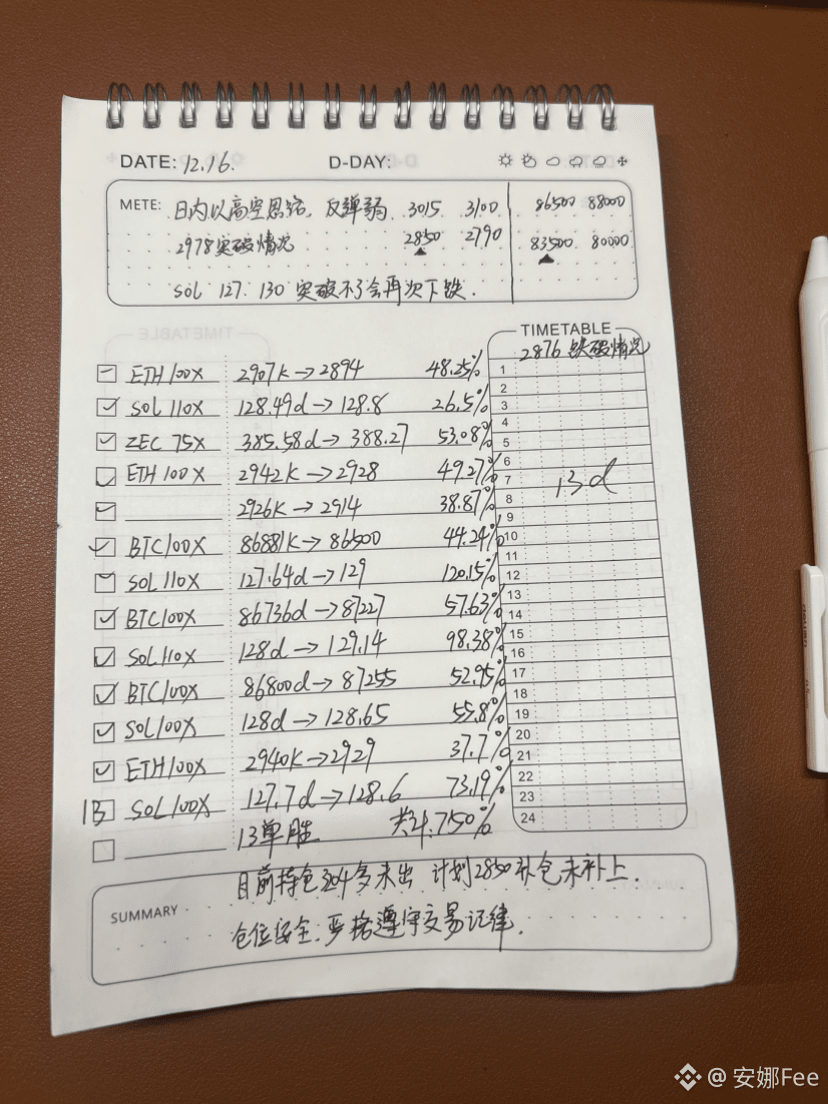 DATE: 12.16. D-DAY:
METE: 日内以高空思路，反弹弱 3015 3100 86500 88000
2978突破情况 2850 2790 83500 80000
SOL 127. 130 突破不了会再次下跌.
TIMETABLE
2876 突破情况
ETH 100X 2907k→2894 48.25%
SOL 110X 128.49d→128.8 26.5%
ZEC 75X 385.58d→388.27 53.08%
ETH 100X 2942k→2928 49.27%
2926k→2914 38.87%
BTC100X 86881k→86500 44.24%
SOL 110X 127.64d→129 120.15%
BTC100X 86736d→87227 57.63%
SOL 110X 128d→129.14 98.38%
BTC100X 86800d→87255 52.95%
SOL100X 128d→128.65 55.8%
ETH100X 2940k→2929 37.7%
13 SOL100X 127.7d→128.6 73.19%
13单胜 共计.750%
1
2
3
4
5
6
7
8
9
10
11
12
13
14
15
16
17
18
19
20
21
22
23
24
13d
目前持仓 多未出 计划2850补仓未补上.
SUMMARY
仓位安全.严格遵守交易记律.
@ 安娜Fee